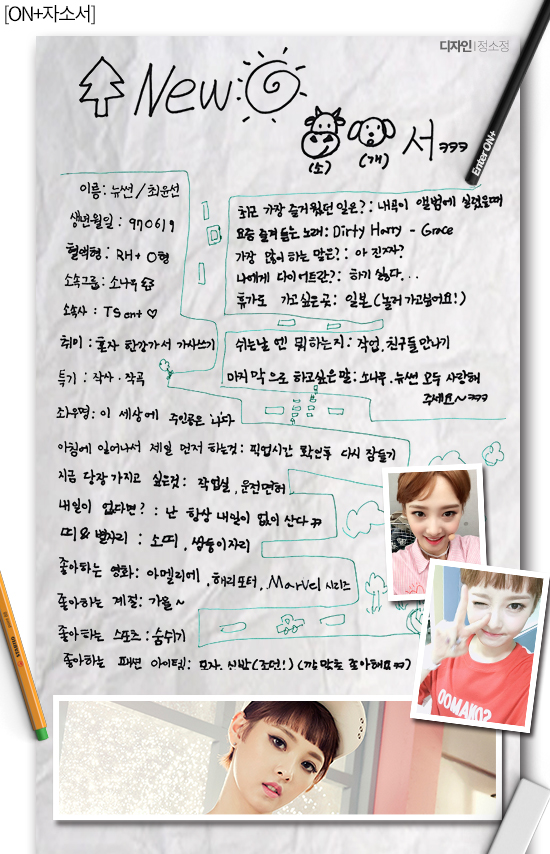 [ON+자소서]
디자인 | 정소정
New
(소)
(개)
서 ㅋㅋㅋ
Enter ON+
이름: 뉴썬 / 최윤선
생년월일: 970619
혈액형: RH+ O형
소속그룹: 소나무
소속사: TS ent ♡
취미: 혼자 한강가서 가사쓰기
특기: 작사·작곡
좌우명: 이 세상에 주인공은 나다
아침에 일어나서 제일 먼저 하는것: 픽업시간 확인후 다시 잠들기
지금 당장 가지고 싶은것: 작업실, 운전면허
내일이 없다면?: 난 항상 내일이 없이 산다ㅋㅋ
띠&별자리: 소띠, 쌍둥이자리
좋아하는 영화: 아멜리에, 해리포터, Marvel 시리즈
좋아하는 계절: 가을~
좋아하는 스포츠: 숨쉬기
좋아하는 패션 아이템: 모자, 신발(조던!) (걍 막 좋아해요ㅋㅋ)
최근 가장 즐거웠던 일은?: 내곡이 앨범에 실렸을때
요즘 즐겨 듣는 노래: Dirty Harry - Grace
가장 많이 하는 말은?: 아 진짜?
나에게 다이어트란?: 하기 싫다...
휴가로 가고싶은곳: 일본 (놀러 가고싶어요!)
쉬는날엔 뭐 하는지: 작업, 친구들 만나기
마지막으로 하고싶은말: 소나무, 뉴썬 모두 사랑해
주세요~ㅋㅋㅋ
SONAMOO
STABILO